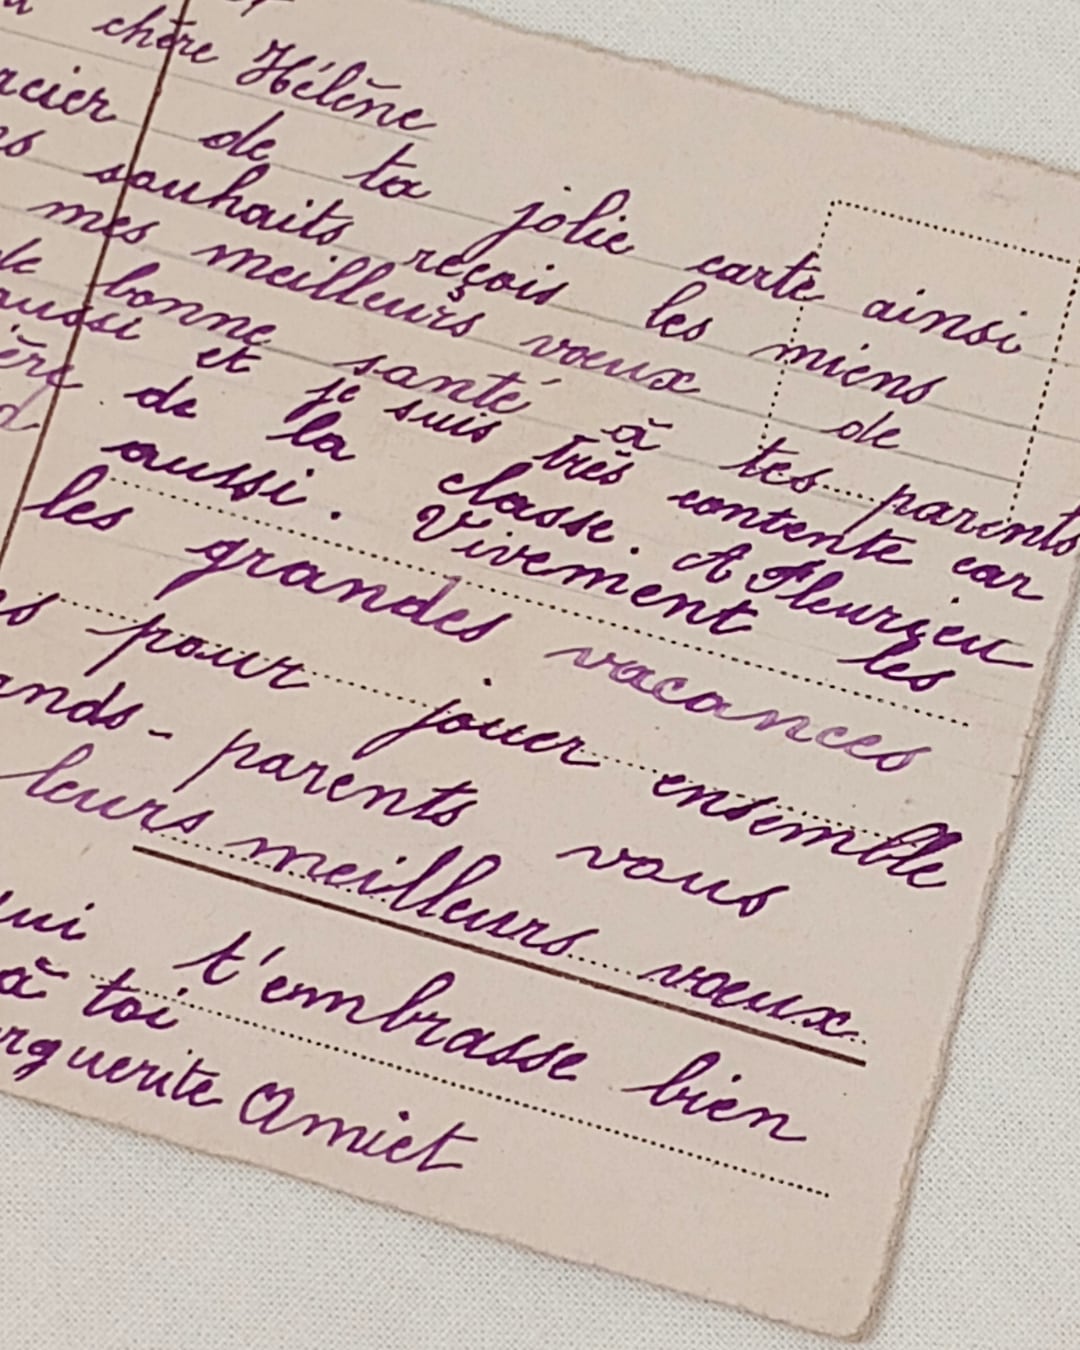 chère Hélène
de ta jolie carte ainsi
souhaits reçois les miens
mes meilleurs vœux de
bonne santé à tes parents
aussi et je suis très contente car
de la classe. A Fleurieu
aussi. Vivement les
les grandes vacances
pour jouer ensemble
parents vous
leurs meilleurs vœux
t'embrasse bien
à toi
Amiet